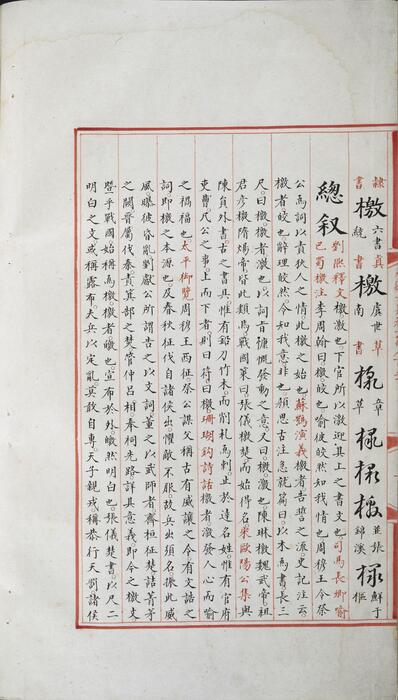 隸書檄六書統真書檄虞世南草書檄章草檄檄檄並張錦溪檄鮮于樞
總叙劉熙釋文檄激也下官所以激迎其上之書文也司馬長卿喻
巴蜀檄注李周翰曰檄皎也喻彼皎然如我情也周穆王令祭
公為詞以責狄人之情此檄之始也蘇鶚演義檄者告誓之派史記注云
檄者皎也辭理皎然令知我意非也顏思古注急就篇曰以木為書長三
尺曰檄檄者激也以詞旨慷慨發動之意又曰檄激也陳琳檄魏武帝祖
君彥檄隋煬帝皆此類焉戰國策曰張儀檄楚而始得名宋歐陽公集與
陳負外書古之書具惟有鉛刀竹木而削札為刺止於達名姓惟有官府
吏曹凡公之事上而下者則曰符曰檄珊瑚鈎詩話檄者激發人心而喻
之禍福也太平御覽周穆王西征祭公謀父稱古有威讓之令有文誥之
詞即檄之本源也及春秋征伐自諸侯出懼敵不服故兵出須名振此威
風曝彼昏亂劉獻公所謂告之以文詞董之以武師者齊桓征楚詰菁茅
之闕晉厲伐秦責箕郜之焚管仲呂相奉祠先路詳其意義即今之檄文
暨乎戰國始稱為檄檄者皦也宣布於外皦然明白也張儀楚書以尺二
明白之文或稱露布夫兵以定亂莫敢自專天子親戎稱恭行天罰諸侯